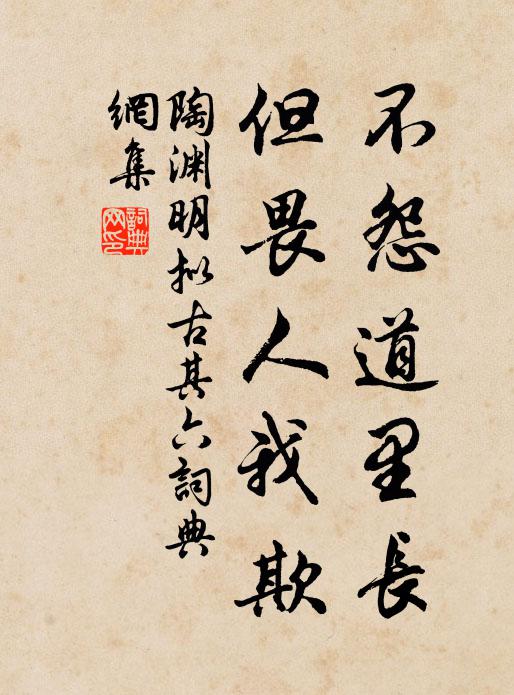 不怨道里長
但畏人我欺
陶渊明拟古其六詞典
網集
詞典
网印